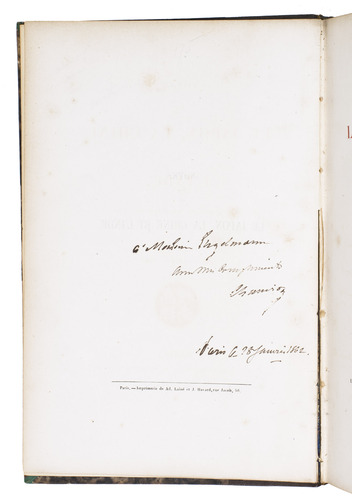 à Monsieur Engelmann
avec mes compliments
Paris le 28 Janvier 1862.
Paris. — Imprimerie de Ad. Lainé et J. Havard, rue Jacob, 56.